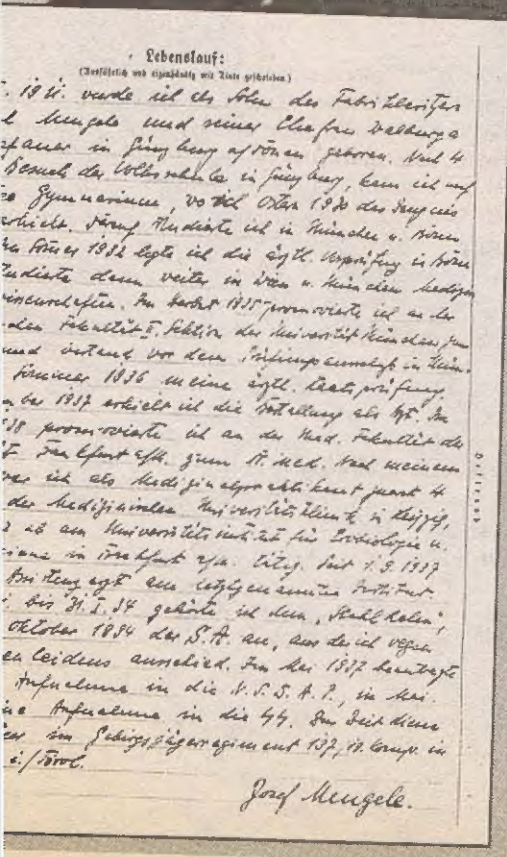 Lebenslauf:
(Ausführlich und eigenhändig mit Tinte geschrieben)
1911. wurde ich als Sohn des Fabrikbesitzers
Mengele und seiner Ehefrau Walburga
in Günzburg a/Donau geboren. Nach 4
Besuch der Volksschule in Günzburg, kam ich auf
Gymnasium, wo ich Ostern 1930 das Zeugnis
erhielt. Darauf studierte ich in München u. Bonn
Sommer 1932 legte ich die ärztl. Vorprüfung in Bonn
studierte dann weiter in Wien u. München Medizin
Im Herbst 1935 promovierte ich an der
Fakultät II. Sektion der Universität München zum
und bestand vor dem Prüfungsausschuß in Mün-
Sommer 1936 meine ärztl. Staatsprüfung.
1937 erhielt ich die Bestallung als Arzt. Im
38 promovierte ich an der Med. Fakultät der
Frankfurt a/M. zum Dr. med. Nach meinem
war ich als Medizinalpraktikant zuerst 4
der Medizinischen Universitätsklinik in Leipzig,
ab am Universitätsinstitut für Erbbiologie u.
in Frankfurt a/M. tätig. Seit 1.9.1937
Assistenzarzt am letztgenannten Institut.
bis 31.I.34 gehörte ich dem „Stahlhelm",
Oktober 1934 der S.A. an, aus der ich wegen
leidens ausschied. Im Mai 1937 beantragte
Aufnahme in die N.S.D.A.P., im Mai
Aufnahme in die SS. Zur Zeit diene
im Gebirgsjägerregiment 137, Komp. in
i./Tirol.
Josef Mengele.